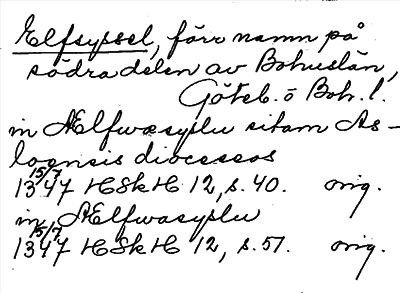 Elfsyssel, förr namn på
södra delen av Bohuslän,
Göteb. o Boh. l.
in Ælfwæsyslu sitam As-
loensis diocesos
15/7
1347 HSkH 12, s. 40. orig.
in Ælfwasyslu
15/7
1347 HSkH 12, s. 51. orig.